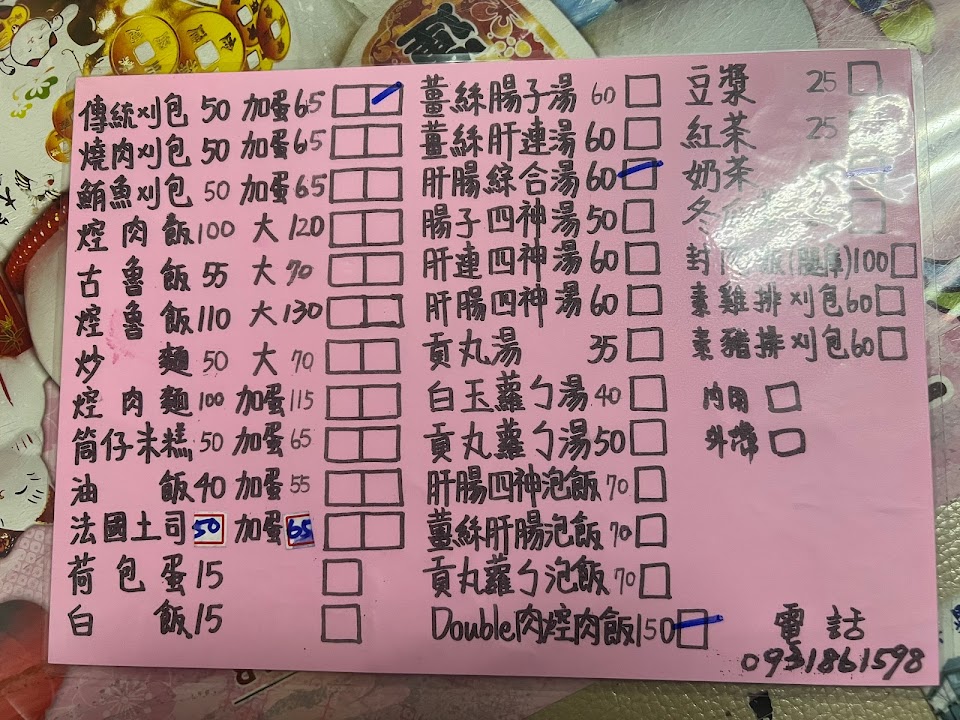 傳統刈包 50 加蛋65
燒肉刈包 50 加蛋65
鮪魚刈包 50 加蛋65
焢肉飯100 大120
古魯飯 55 大70
焢魯飯110 大130
炒麵50 大70
焢肉麵100 加蛋115
筒仔米糕50 加蛋65
油飯40 加蛋55
法國土司50 加蛋65
荷包蛋15
白飯15
薑絲腸子湯60
薑絲肝連湯60
肝腸綜合湯60
腸子四神湯50
肝連四神湯60
肝腸四神湯60
貢丸湯35
白玉蘿勹湯40
貢丸蘿勹湯50
肝腸四神泡飯70
薑絲肝腸泡飯70
貢丸蘿勹泡飯70
Double肉焢肉飯150
豆漿25
紅茶25
奶茶
冬
封飯(腿庫)100
素雞排刈包60
素豬排刈包60
內用
外帶
電話
0931861598